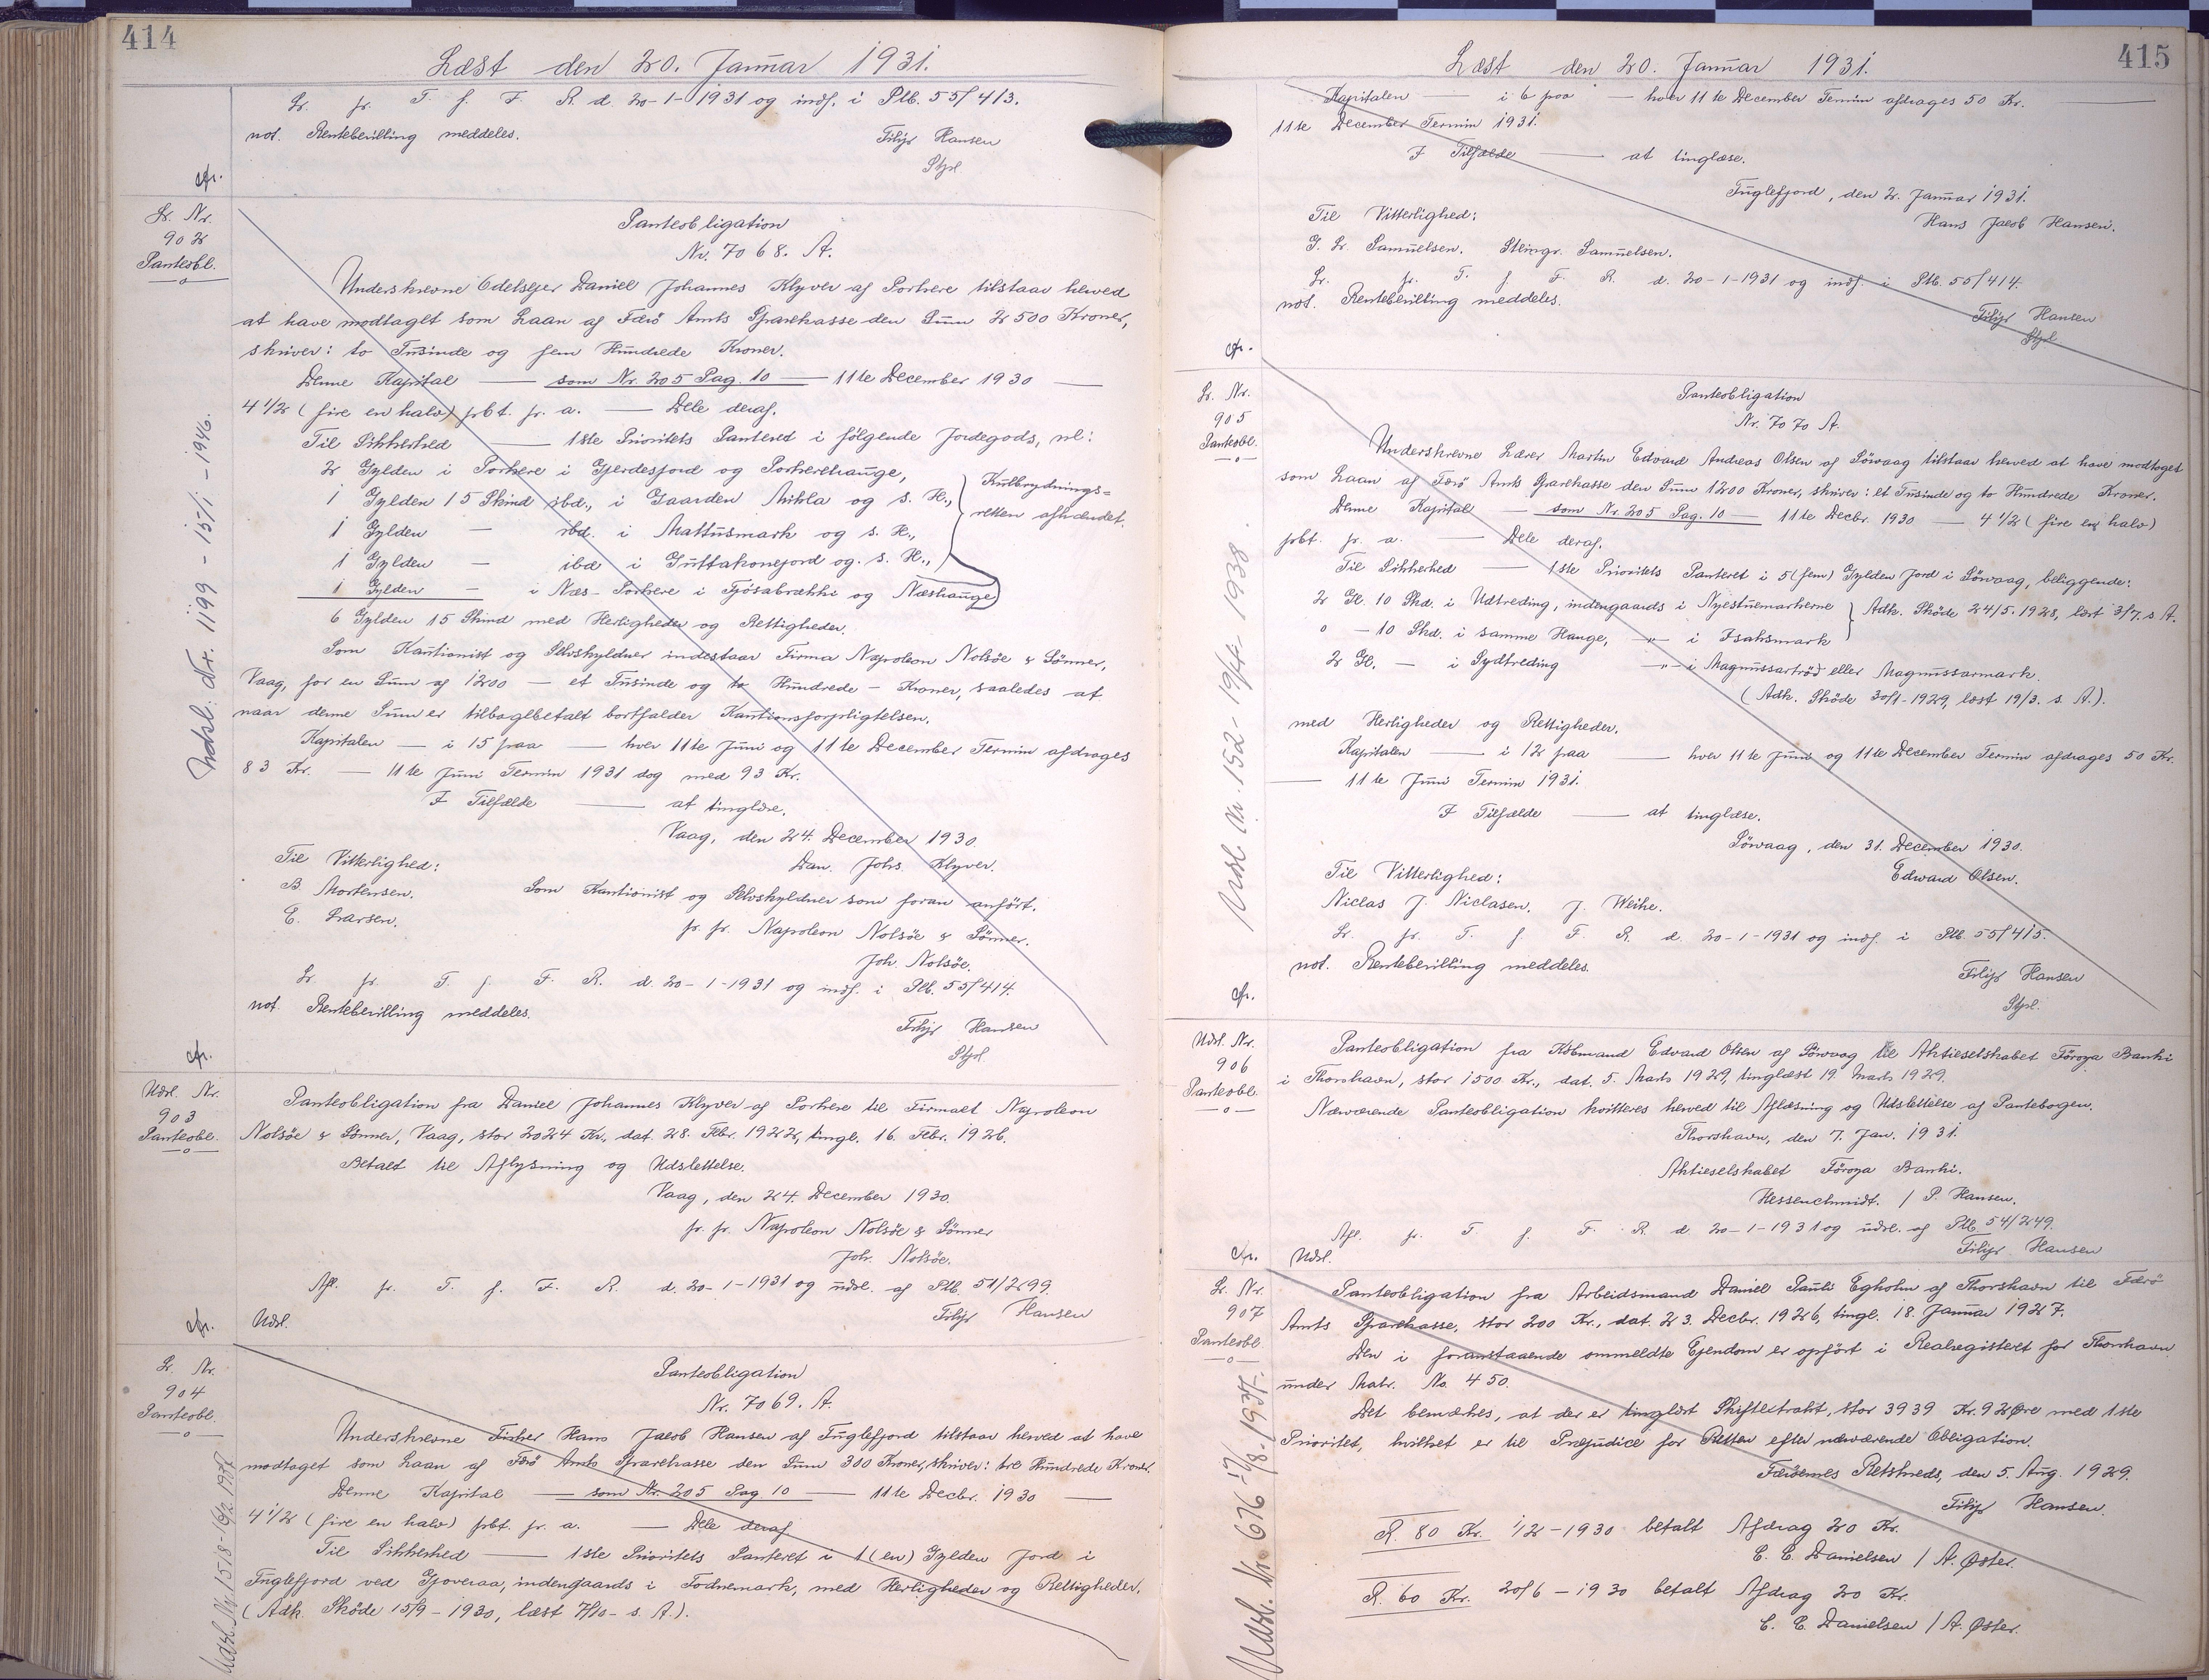 414
Læst den 20. Januar 1931.
Lr. fr. T. f. F. R. d. 20-1-1931 og indf. i Ptb. 55/413.
not. Rentebevilling meddeles.
Filip Hansen
Stpl.
cfr.
Lr. Nr.
902
Panteobl.
Panteobligation
Nr. 7068. A.
Underskrevne Odelsejer Daniel Johannes Klyver af Porkere tilstaar herved
at have modtaget som Laan af Færø Amts Sparekasse den Sum 2500 Kroner,
skriver: to Tusinde og fem Hundrede Kroner.
Denne Kapital — som Nr. 205 Pag. 10 — 11te December 1930 —
4 1/2 (fire en halv) pbt. p. a. — Dele deraf.
Til Sikkerhed — 1ste Prioritets Panteret i følgende Jordegods, nl:
2 Gylden i Porkere i Gjerdesfjord og Porkerehauge,
1 Gylden 15 Skind ibd., i Gaarden Mikla og s. H.,
1 Gylden — ibd. i Mattusmark og s. H.,
1 Gylden — ibd i Guttakonejord og. s. H.,
Kulbrydnings-
retten afhændet.
1 Gylden — i Næs-Porkere i Fjósabrækki og Næshauge
6 Gylden 15 Skind med Herligheder og Rettigheder.
Som Kautionist og Selvskyldner indestaar Firma Napoleon Nolsøe & Sönner,
Vaag, for en Sum af 1200 — et Tusinde og to Hundrede — Kroner, saaledes at
naar denne Sum er tilbagebetalt bortfalder Kautionsforpligtelsen.
Kapitalen — i 15 paa — hver 11te Juni og 11te December Termin afdrages
83 Kr. — 11te Juni Termin 1931 dog med 93 Kr.
I Tilfælde — at tinglæse.
Vaag, den 24. December 1930.
Til Vitterlighed: Dan. Johs Klyver.
B. Mortensen. Som Kautionist og Selvskyldner som foran anført.
E. Larsen. pr. pr. Napoleon Nolsöe & Sönner.
Joh. Nolsöe.
Lr. fr. T. f. F. R. d. 20-1-1931 og indf. i Ptb. 55/414.
not. Rentebevilling meddeles.
Filip Hansen
Stpl
cfr.
Udsl. Nr. 1199 - 15/1 - 1946.
Udsl. Nr.
903
Panteobl.
Panteobligation fra Daniel Johannes Klyver af Porkere til Firmaet Napoleon
Nolsöe & Sönner, Vaag, stor 2024 Kr., dat. 28. Febr. 1922, tingl. 16. Febr. 1926.
Betalt til Aflysning og Udslettelse.
Vaag, den 24. December 1930.
pr. pr. Napoleon Nolsöe & Sönner
Joh. Nolsöe.
Afl. fr. T. f. F. R. d. 20-1-1931 og udsl. af Ptb. 51/299.
Filip Hansen
cfr. Udsl.
Lr. Nr.
904
Panteobl.
Panteobligation
Nr. 7069. A.
Underskrevne Fisker Hans Jacob Hansen af Fuglefjord tilstaar herved at have
modtaget som Laan af Færø Amts Sparekasse den Sum 300 Kroner, skriver: tre Hundrede Kroner.
Denne Kapital — som Nr. 205 Pag. 10 — 11te Decbr. 1930 —
4 1/2 (fire en halv) pbt. p. a. — Dele deraf
Til Sikkerhed — 1ste Prioritets Panteret i 1 (en) Gylden Jord i
Fuglefjord ved Gjoveraa, indengaards i Todnemark, med Herligheder og Rettigheder.
(Adk. Sköde 15/9 - 1930, læst 7/10 - s. A.).
Udsl. Nr. 1518 -
415
Læst den 20. Januar 1931.
Kapitalen — i 6 paa — hver 11te December Termin afdrages 50 Kr.
11te December Termin 1931.
I Tilfælde — at tinglæse.
Fuglefjord, den 2. Januar 1931.
Til Vitterlighed: Hans Jacob Hansen.
G. Sr. Samuelsen. Steingr. Samuelsen.
Lr. fr. T. f. F. R. d. 20-1-1931 og indf. i Ptb. 55/414.
not. Rentebevilling meddeles.
Filip Hansen
Stpl
cfr.
Lr. Nr.
905
Panteobl.
Panteobligation
Nr. 7070 A.
Underskrevne Lærer Martin Edvard Andreas Olsen af Sörvaag tilstaar herved at have modtaget
som Laan af Færö Amts Sparekasse den Sum 1200 Kroner, skriver: et Tusinde og to Hundrede Kroner.
Denne Kapital — som Nr. 205 Pag. 10 — 11te Decbr. 1930 — 4 1/2 (fire en halv)
pbt. p. a. — Dele deraf.
Til Sikkerhed — 1ste Prioritets Panteret i 5 (fem) Gylden Jord i Sörvaag, beliggende:
2 Gl. 10 Skd. i Udtreding, indengaards i Nyestuemarkerne
o — 10 Skd. i samme Hauge, —"— i Isaksmark
Adk. Sköde 24/5. 1928, læst 3/7. s A.
2 Gl. — i Sydtreding —"— i Magnussartröd eller Magnussarmark.
(Adk. Sköde 30/1-1929, læst 19/3. s. A.).
med Herligheder og Rettigheder.
Kapitalen — i 12 paa — hver 11te Juni og 11te December Termin afdrages 50 Kr.
— 11te Juni Termin 1931.
I Tilfælde — at tinglæse.
Sörvaag, den 31. December 1930.
Til Vitterlighed: Edward Olsen.
Niclas J. Niclasen. J. Weihe.
Lr. fr. T. f. F. R. d. 20-1-1931 og indf. i Ptb. 55/415.
not. Rentebevilling meddeles.
Filip Hansen
Stpl.
cfr.
Udsl Nr. 152 - 19/4 - 1938.
Udsl. Nr.
906
Panteobl.
Panteobligation fra Köbmand Edvard Olsen af Sörvaag til Aktieselskabet Föroya Banki
i Thorshavn, stor 1500 Kr., dat. 5. Marts 1929, tinglæst 19. Marts 1929.
Nærværende Panteobligation kvitteres herved til Aflæsning og Udslettelse af Pantebogen.
Thorshavn, den 7. Jan. 1931.
Aktieselskabet Föroya Banki.
Hessenschmidt. / P. Hansen.
Afl. fr. T. f. F. R. d 20-1-1931 og udsl. af Ptb. 54/249.
cfr. Udsl. Filip Hansen
Lr. Nr.
907
Panteobl.
Panteobligation fra Arbeidsmand Daniel Pauli Egholm af Thorshavn til Færö
Amts Sparekasse, stor 200 Kr., dat. 23. Decbr. 1926, tingl. 18. Januar 1927.
Den i foranstaaende ommeldte Ejendom er opfört i Realregisteret for Thorshavn
under Matr. No. 450.
Det bemærkes, at der er tinglæst Skifteextrakt, stor 3939 Kr. 92 Øre med 1ste
Prioritet, hvilket er til Præjudice for Retten efter nærværende Obligation.
Færöernes Retskreds, den 5. Aug. 1929.
Filip Hansen.
R. 80 Kr. 1/2 - 1930 betalt Afdrag 20 Kr.
C. C. Danielsen / A. Øster.
R. 60 Kr. 20/6 - 1930 betalt Afdrag 20 Kr.
C. C. Danielsen / A. Øster.
Udsl. Nr. 676